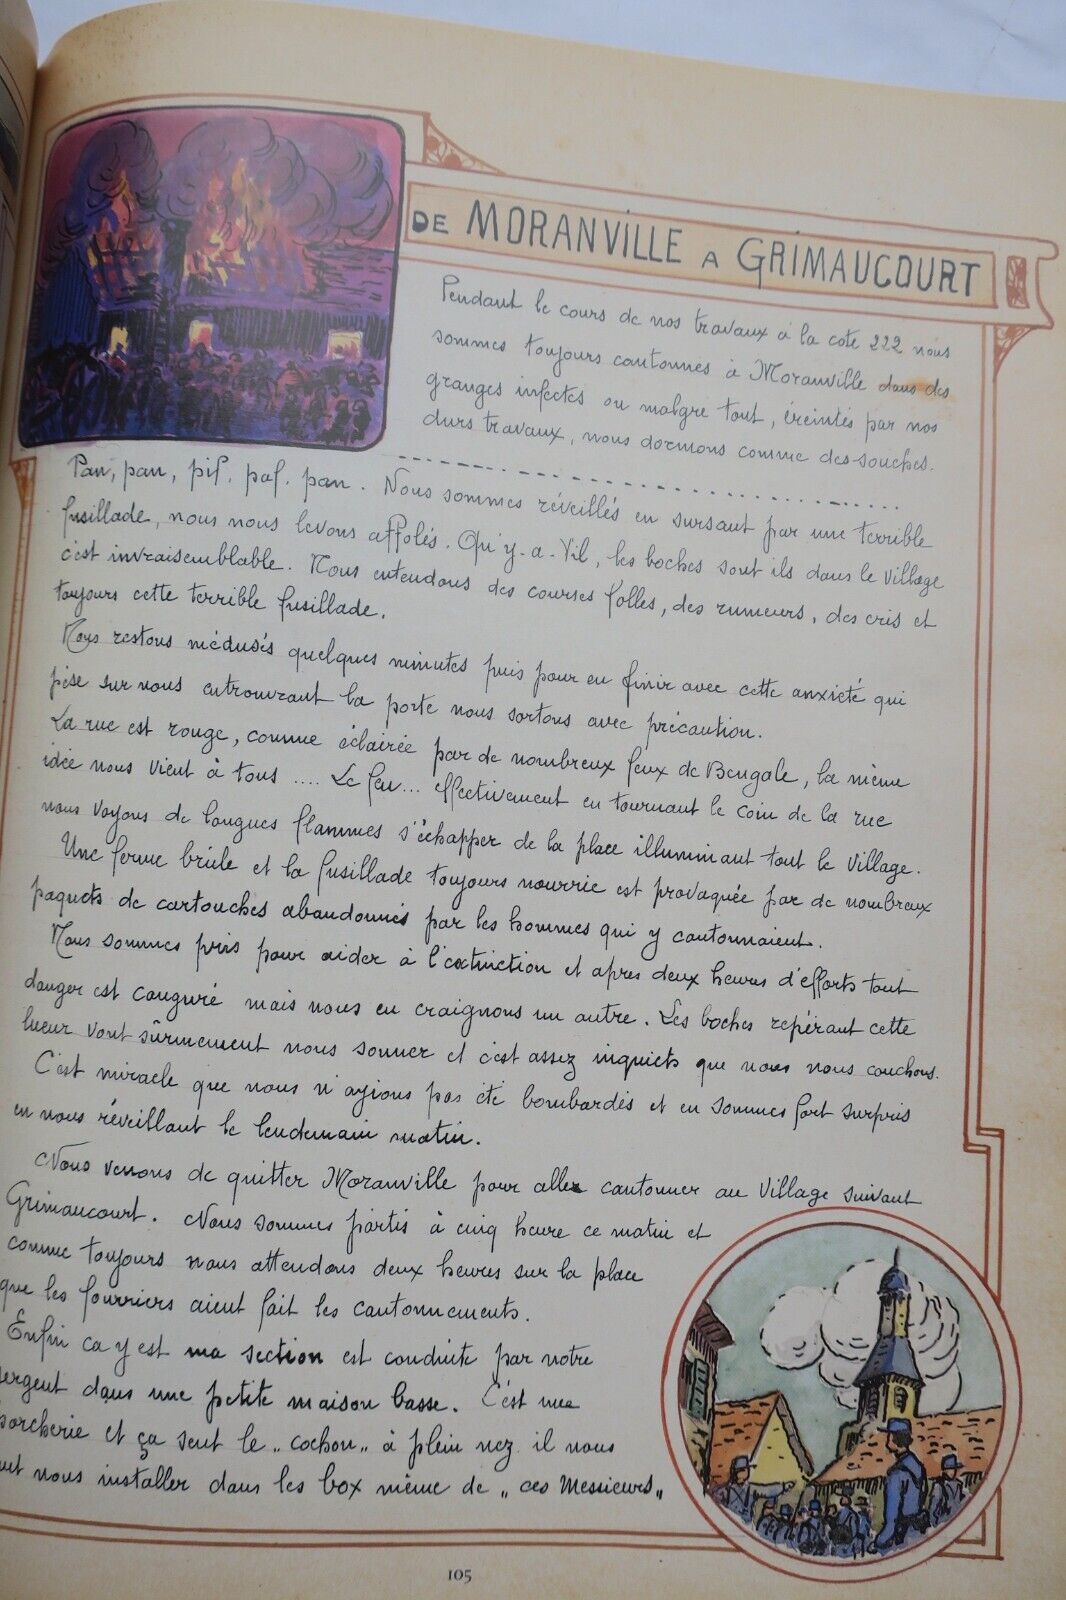 DE MORANVILLE A GRIMAUCOURT
Pendant le cours de nos travaux à la cote 222 nous
sommes toujours cantonnés à Moranville dans des
granges infectes ou malgré tout, éreintés par nos
durs travaux, nous dormons comme des souches.
Pan, pan, pif, paf, pan. Nous sommes réveillés en sursaut par une terrible
fusillade, nous nous levons affolés. Qu'y-a-t-il, les boches sont ils dans le village
c'est invraisemblable. Nous entendons des courses folles, des rumeurs, des cris et
toujours cette terrible fusillade.
Nous restons médusés quelques minutes puis pour en finir avec cette anxiété qui
pèse sur nous entrouvrant la porte nous sortons avec précaution.
La rue est rouge, comme éclairée par de nombreux feux de Bengale, la même
idée nous vient à tous .... Le feu... effectivement en tournant le coin de la rue
nous voyons de longues flammes s'échapper de la place illuminant tout le village.
Une ferme brûle et la fusillade toujours nourrie est provaquée par de nombreux
paquets de cartouches abandonnés par les hommes qui y cantonnaient.
Nous sommes pris pour aider à l'extinction et apres deux heures d'efforts tout
danger est conjuré mais nous en craignons un autre. Les boches repérant cette
lueur vont sûrmement nous sonner et c'est assez inquiets que nous nous couchons.
C'est miracle que nous n'ayions pas été bombardés et en sommes fort surpris
en nous réveillant le lendemain matin.
Nous venons de quitter Moranville pour aller cantonner au village suivant
Grimaucourt. Nous sommes partis à cinq heure ce matin et
comme toujours nous attendons deux heures sur la place
que les fourriers aient fait les cantonnements.
Enfin ca y est ma section est conduite par notre
sergent dans une petite maison basse. C'est une
porcherie et ça sent le „cochon„ à plein nez il nous
nous installer dans les box même de „ces Messieurs„
105